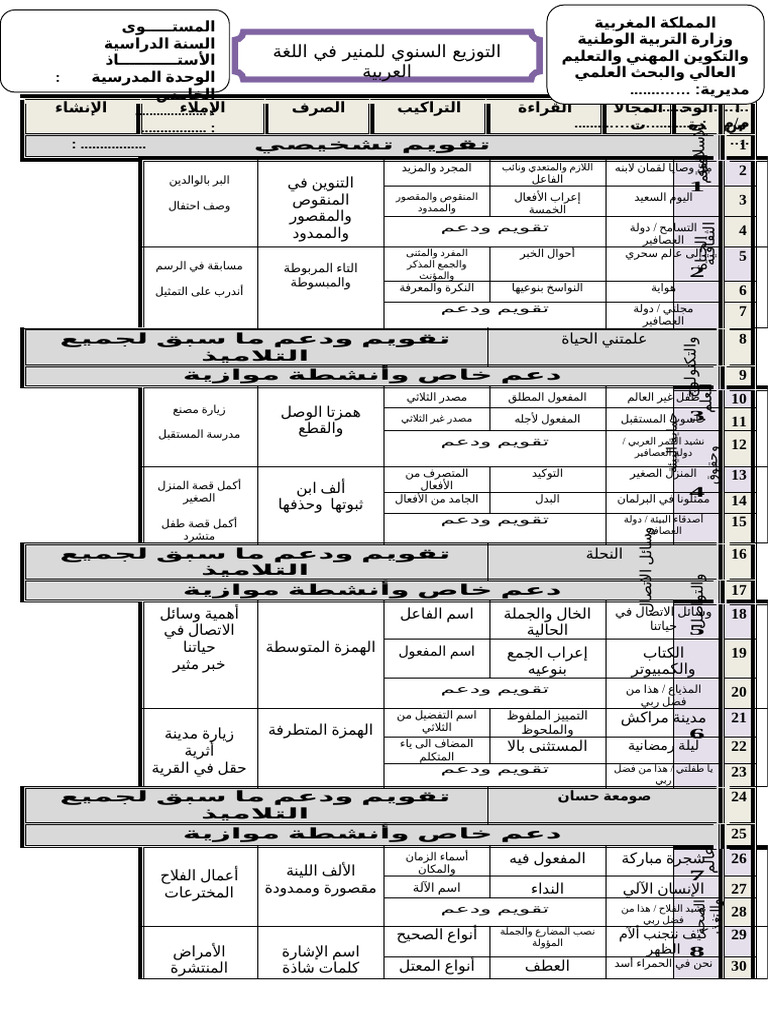 المملكة المغربية
وزارة التربية الوطنية
والتكوين المهني والتعليم
العالي والبحث العلمي
مديرية: ............
التوزيع السنوي للمنير في اللغة
العربية
المستـــــوى
السنة الدراسية
الأستـــــــــاذ
الوحدة المدرسية :
الخامس
القراءة التراكيب الصرف الإملاء الإنشاء
1 تقويم تشخيصي
2 وصايا لقمان لابنه اللازم والمتعدي ونائب الفاعل المجرد والمزيد
3 اليوم السعيد إعراب الأفعال الخمسة المنقوص والمقصور والممدود
4 التسامح / دولة العصافير تقويم ودعم
التنوين في المنقوص والمقصور والممدود
البر بالوالدين
وصف احتفال
5 إلى عالم سحري أحوال الخبر المفرد والمثنى والجمع المذكر والمؤنث
6 هواية النواسخ بنوعيها النكرة والمعرفة
7 مجلتي / دولة العصافير تقويم ودعم
التاء المربوطة والمبسوطة
مسابقة في الرسم
أتدرب على التمثيل
8 علمتني الحياة تقويم ودعم ما سبق لجميع التلاميذ
9 دعم خاص وأنشطة موازية
10 طفل غير العالم المفعول المطلق مصدر الثلاثي
11 حاسوب المستقبل المفعول لأجله مصدر غير الثلاثي
12 نشيد القمر العربي / دولة العصافير تقويم ودعم
همزتا الوصل والقطع
زيارة مصنع
مدرسة المستقبل
13 المنزل الصغير التوكيد المتصرف من الأفعال
14 ممثلونا في البرلمان البدل الجامد من الأفعال
15 أصدقاء البيئة / دولة العصافير تقويم ودعم
ألف ابن ثبوتها وحذفها
أكمل قصة المنزل الصغير
أكمل قصة طفل متشرد
16 النحلة تقويم ودعم ما سبق لجميع التلاميذ
17 دعم خاص وأنشطة موازية
18 وسائل الاتصال في حياتنا الخال والجملة الحالية اسم الفاعل
19 الكتاب والكمبيوتر إعراب الجمع بنوعيه اسم المفعول
20 المذياع / هذا من فضل ربي تقويم ودعم
الهمزة المتوسطة
أهمية وسائل الاتصال في حياتنا
خبر مثير
21 مدينة مراكش التمييز الملفوظ والملحوظ اسم التفضيل من الثلاثي
22 ليلة رمضانية المستثنى بالا المضاف الى ياء المتكلم
23 يا طفلتي / هذا من فضل ربي تقويم ودعم
الهمزة المتطرفة
زيارة مدينة أثرية
حقل في القرية
24 صومعة حسان تقويم ودعم ما سبق لجميع التلاميذ
25 دعم خاص وأنشطة موازية
26 شجرة مباركة المفعول فيه أسماء الزمان والمكان
27 الإنسان الآلي النداء اسم الآلة
28 نشيد الفلاح / هذا من فضل ربي تقويم ودعم
الألف اللينة مقصورة وممدودة
أعمال الفلاح
المخترعات
29 كيف نتجنب آلام الظهر نصب المضارع والجملة المؤولة أنواع الصحيح
30 نحن في الحمراء أسد العطف أنواع المعتل
اسم الإشارة
كلمات شاذة
الأمراض المنتشرة